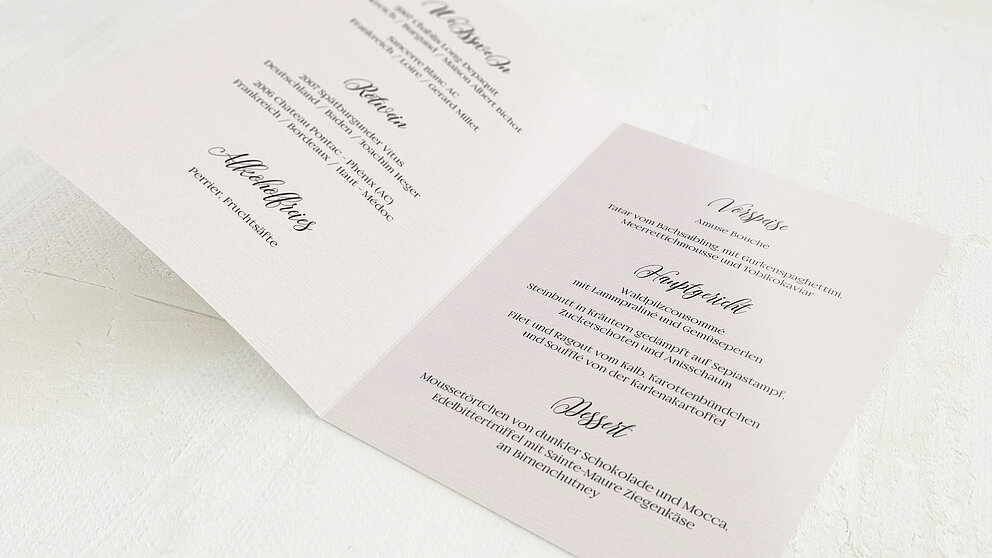 Weisswein
2001 Chablis Long-Depaquit
Frankreich / Burgund / Maison Albert Bichot
Sancerre Blanc AC
Frankreich / Loire / Gerard Millet
Rotwein
2007 Spätburgunder Vitus
Deutschland / Baden / Joachim Heger
2006 Chateau Pontac - Phénix (AC)
Frankreich / Bordeaux / Haut - Médoc
Alkoholfreies
Perrier, Fruchtsäfte
Vorspeise
Amuse Bouche
Tatar vom Bachsaibling, mit Gurkenspaghettini,
Meerrettichmousse und Tobikokaviar
Hauptgericht
Waldpilzconsommé
mit Lammpraliné und Gemüseperlen
Steinbutt in Kräutern gedämpft auf Sepiastampf,
Zuckerschoten und Anisschaum
Filet und Ragout vom Kalb, Karottenbündchen
und Soufflé von der Karlenakartoffel
Dessert
Moussetörtchen von dunkler Schokolade und Mocca,
Edelbittertrüffel mit Sainte-Maure Ziegenkäse
an Birnenchutney